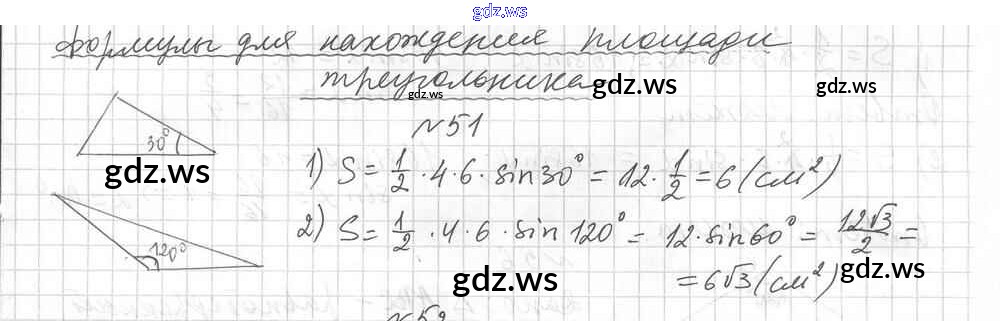 gdz.ws
Формулы для нахождения площади
треугольника
gdz.ws
gdz.ws
gdz.ws
№51
30°
1) S = 1/2 · 4 · 6 · sin 30° = 12 · 1/2 = 6 (см²)
gdz.ws
120°
2) S = 1/2 · 4 · 6 · sin 120° = 12 · sin 60° = 12√3/2 =
= 6√3 (см²)
gdz.ws
gdz.ws